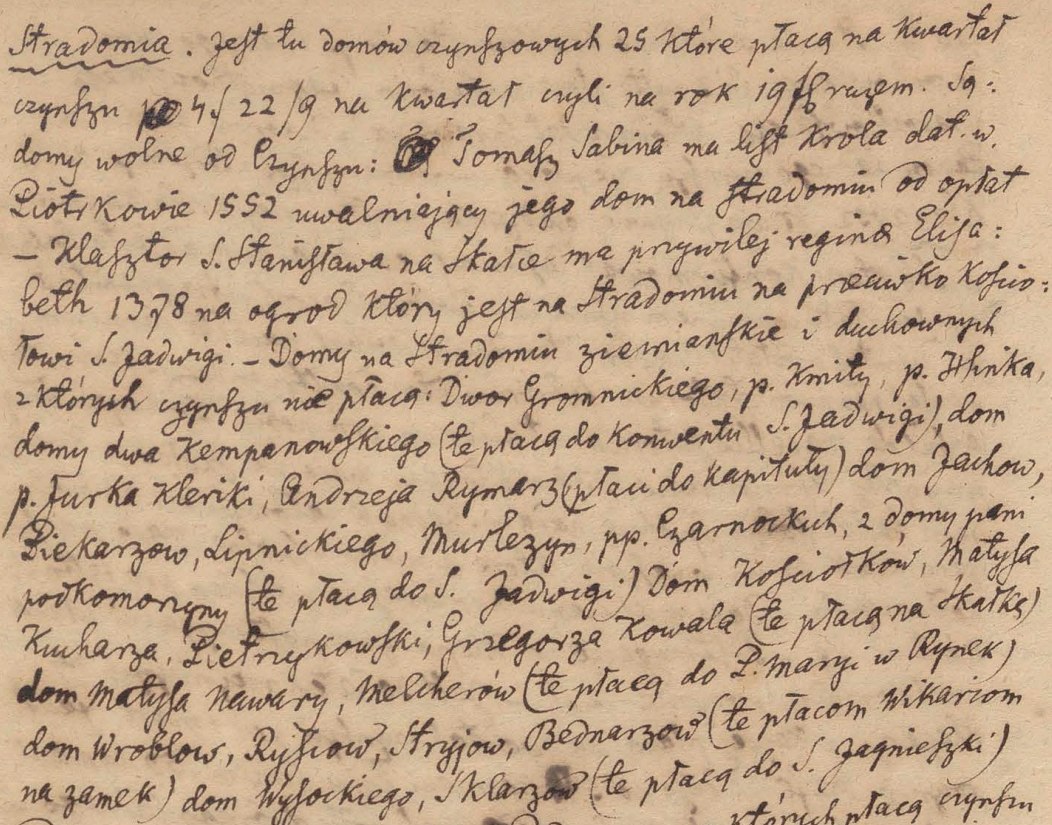 Stradomia. Jest tu domów czynszowych 25 które płacą na Kwartał
czynszu po 4/ 22/9 na Kwartał czyli na rok 19/ razem. Są:
domy wolne od Czynszu: Tomasz Sabina ma list Krola dat. w.
Piotrkowie 1552 uwalniający jego dom na Stradomiu od opłat
– Klasztor S. Stanisława na Skałce ma przywilej reginæ Elisa:
beth 1378 na ogrod który jest na Stradomiu na przeciwko Koscio:
łowi S. Jadwigi. – Domy na Stradomiu ziemianskie i duchownych
z których czynszu nie płacą: Dwor Gromnickiego, p. Kmity, p. Hlinka,
domy dwa Kempanowskiego (te płacą do Konwentu S. Jadwigi), dom
p. Jurka Kleriki, Andrzeja Rymarz (płaci do Kapituły) dom Jachow,
Piekarzow, Lipnickiego, Murlezyn, pp. Czarnockich, 2 domy pani
podkomorzyny (te płacą do S. Jadwigi) Dom Kosciołków, Matysa
Kucharza, Pietrzykowski, Grzegorza Kowala (te płacą na Skałkę)
dom Matysa Nawary, Melcherów (te płacą do P. Maryi w Rynek)
dom Wroblow, Rysiow, Stryjow, Bednarzow (te płacom Wikariom
na zamek) dom Wysockiego, Sklarzow (te płacą do S. Jagnieszki)
których płacą czynszu